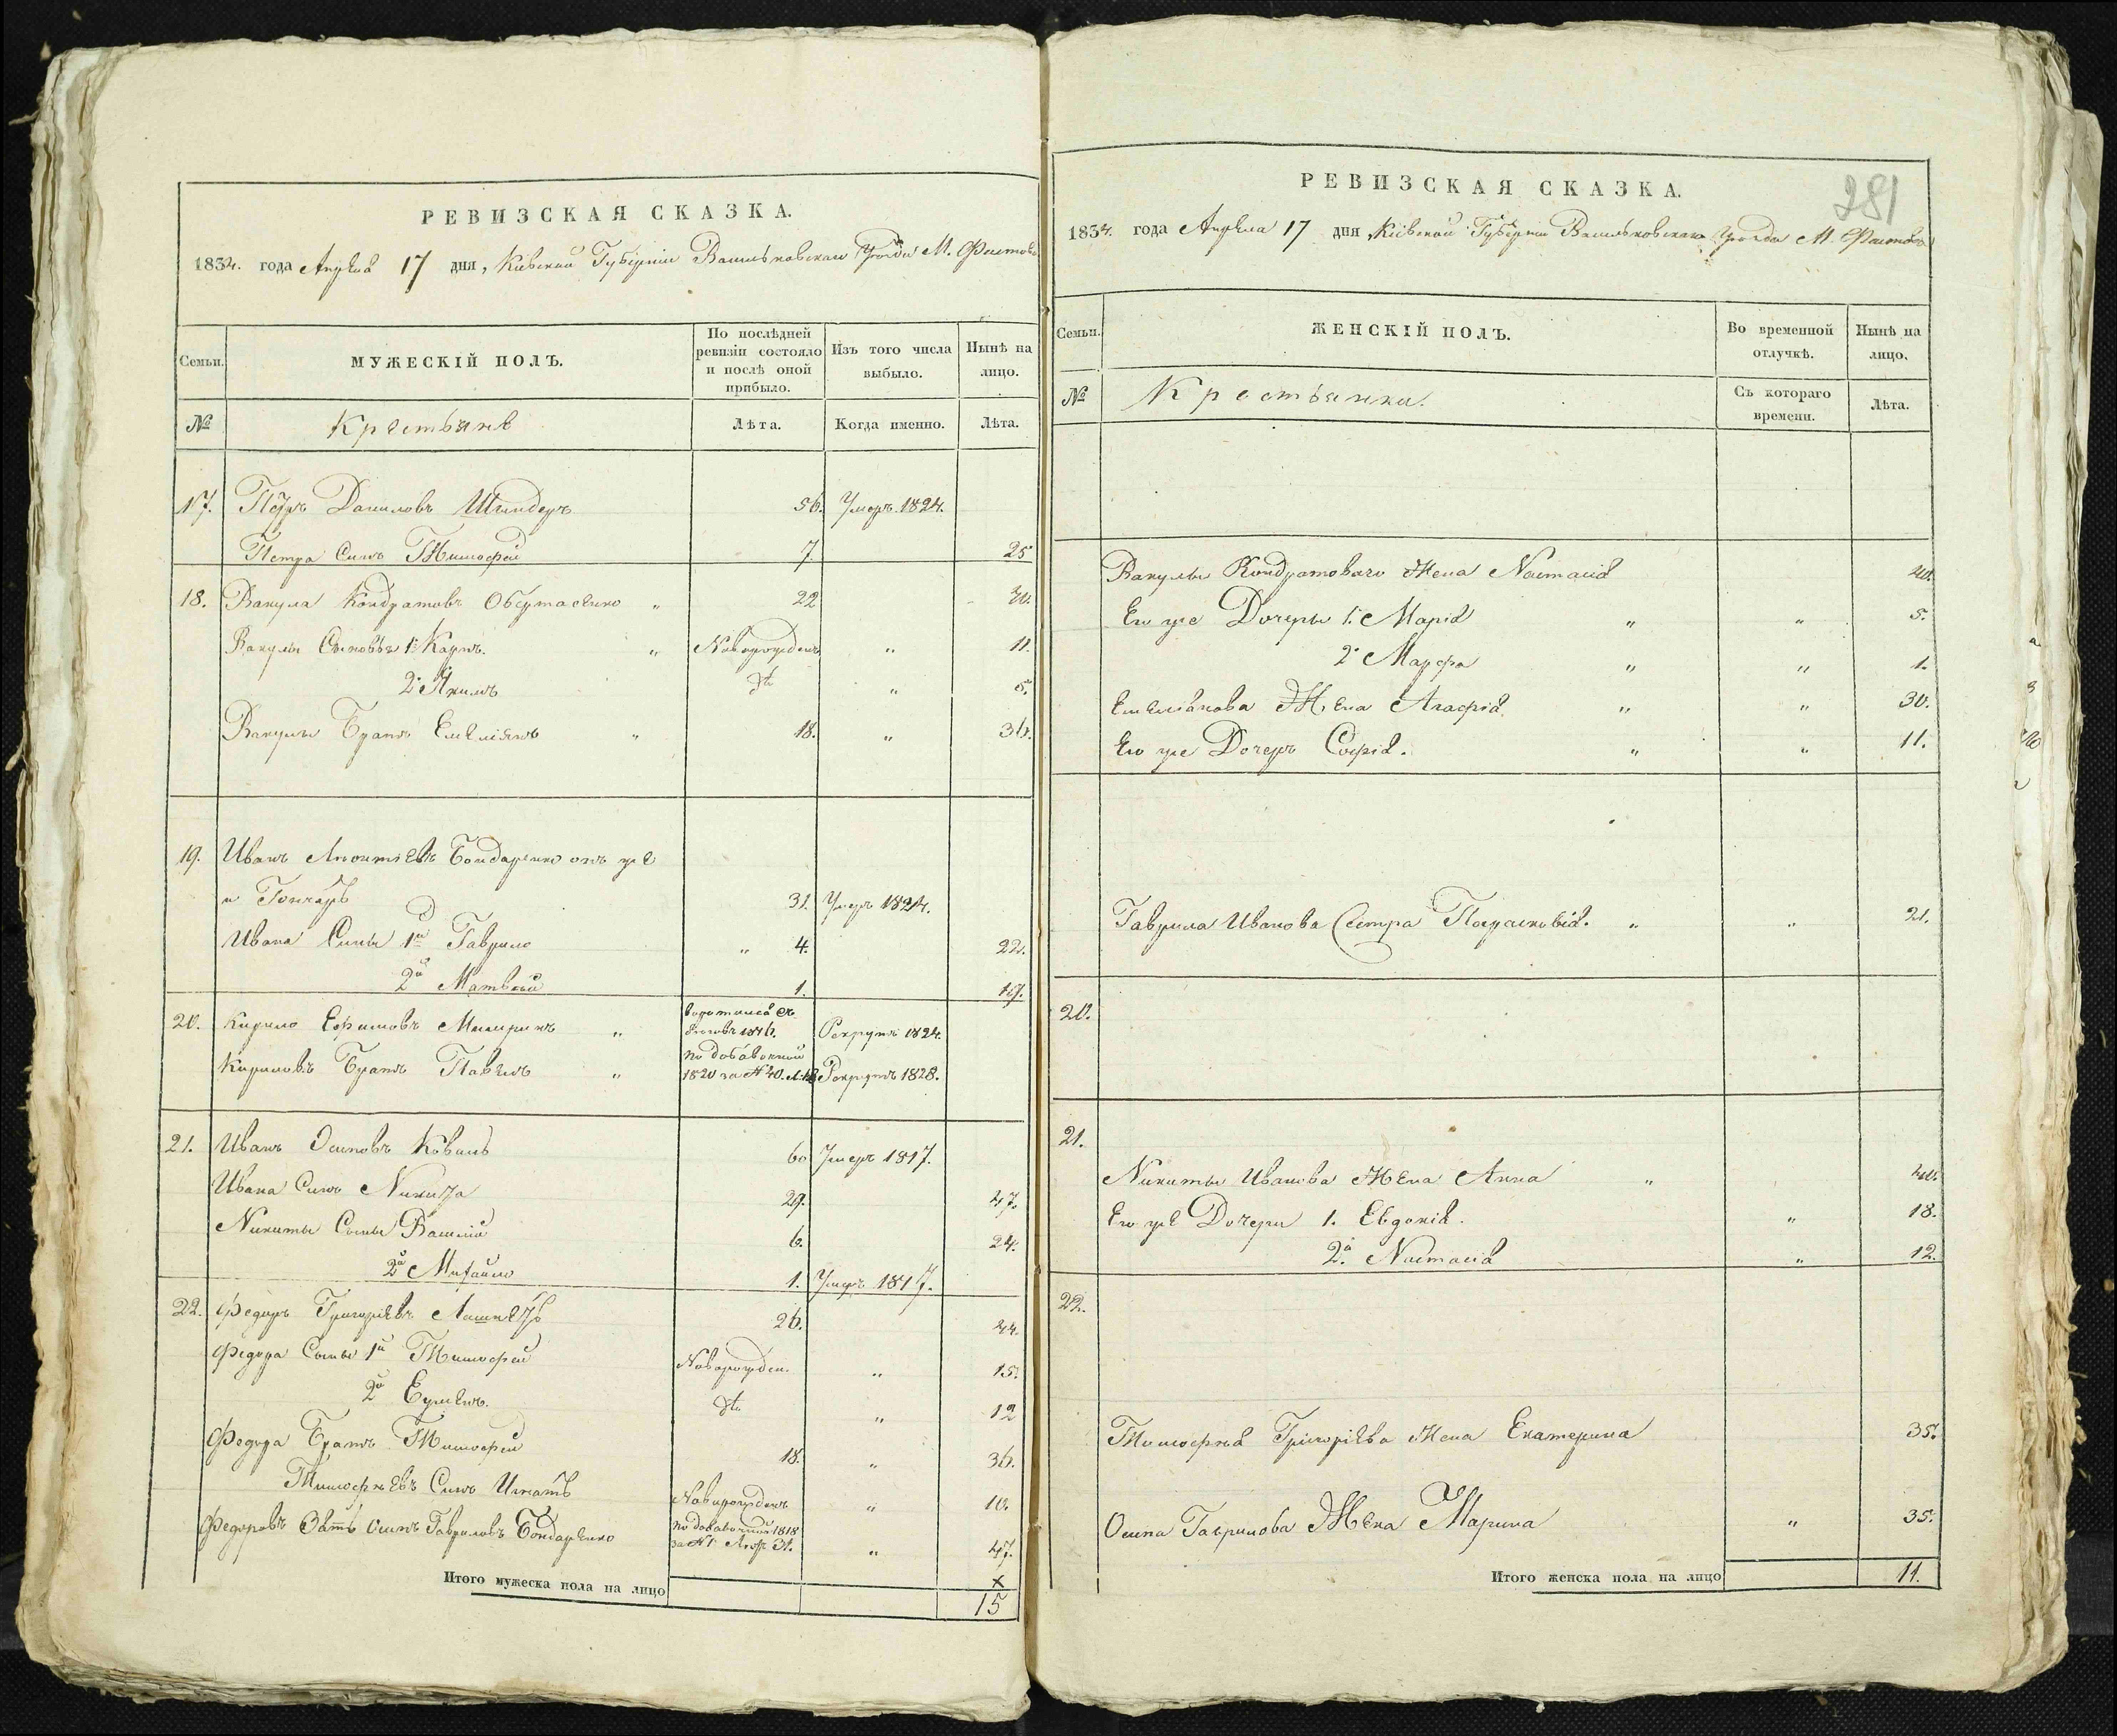 РЕВИЗСКАЯ СКАЗКА.
1834. года Апреля 17 дня, Киевской Губернии Васильковскаго Уезда М. Фастова
Семьи.
МУЖЕСКІЙ ПОЛЪ.
По послѣдней ревизіи состояло и послѣ оной прибыло.
Изъ того числа выбыло.
Нынѣ на лицо.
№
Крестьяне
Лѣта.
Когда именно.
Лѣта.
17. Петръ Даниловъ 56. Умеръ 1824.
Петра Сынъ Тимофей 7. 25
18. Вакула Кондратовъ Обертасенко " 22 40.
Вакулы Сыновья 1й Карпъ. " Новорожденъ " 11.
2й Якимъ dto " 5.
Вакулы Братъ Емеліянъ " 18. " 36.
19. Иванъ Бондаренко онъ же
и Гончаръ 31. Умеръ 1824.
Ивана Сыны 1й Гаврило " 4. 22.
2й Матвей 1. 19.
20. Кирило Ефимовъ " Рекрутъ 1824.
Кириловъ Братъ Павелъ " по добавочной 1820 за № 40. Рекрутъ 1828.
21. Иванъ Осиповъ Коваль 60 Умеръ 1817.
Ивана Сынъ Никита 29. 47.
Никиты Сыны Василій 6. 24.
2й Михайло 1. Умеръ 1817.
22. Федоръ Григоріевъ 26. 44.
Федора Сыны 1й Тимофей Новорожден. " 15.
2й dto " 12
Федора Братъ Тимофей 18. " 36.
Тимофеевъ Сынъ Игнатъ Новорожденъ " 10.
Федоровъ Зять Осипъ Гавриловъ Бондаренко по добавочной 1818 за № 1 31. " 47.
Итого мужеска пола на лицо
×
15
281
РЕВИЗСКАЯ СКАЗКА.
1834. года Апреля 17 дня Кіевской Губерніи Васильковскаго Уезда М. Фастова
Семьи.
ЖЕНСКІЙ ПОЛЪ.
Во временной отлучкѣ.
Нынѣ на лицо.
№
Крестьянки.
Съ котораго времени.
Лѣта.
Вакулы Кондратоваго Жена Настасія 40.
Его же Дочеры 1. Марія " " 5.
2. Марфа " " 1.
Емеліанова Жена Агафія " " 30.
Его же Дочерь Софія. " " 11.
Гаврила Иванова Сестра Парасковія. " " 21.
20.
21.
Никиты Иванова Жена Анна " 40.
Его же Дочери 1. Евдокія. " 18.
2я. Настасія " 12.
22.
Тимофея Григоріева Жена Екатерина 35.
Осипа Гаврилова Жена Марина " 35.
Итого женска пола на лицо 11.